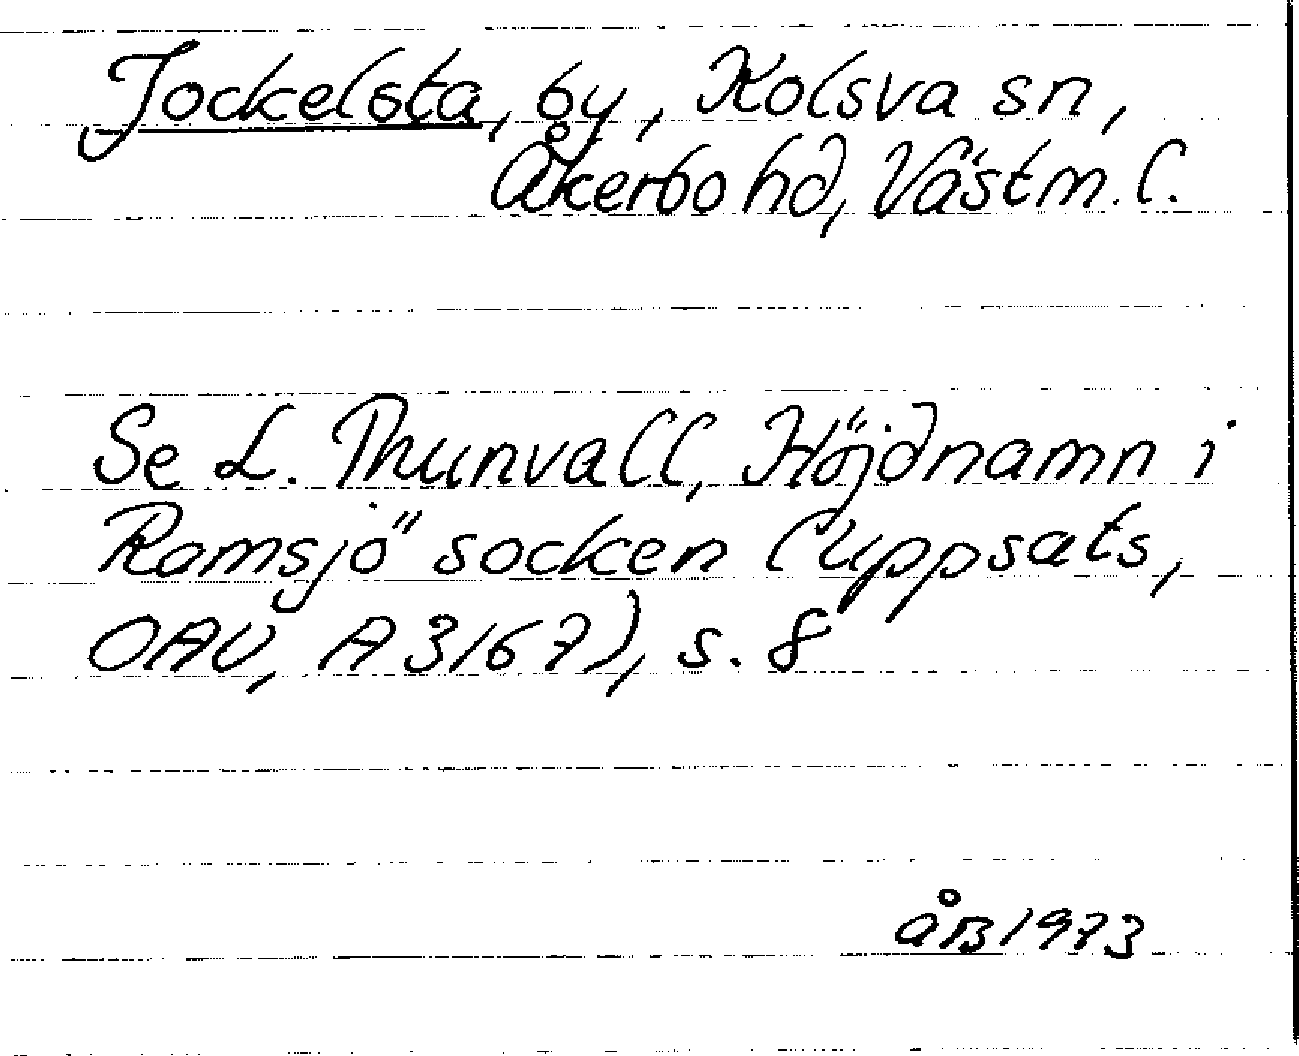 Jockelsta, by, Kolsva sn,
Åkerbo hd, Västm. l.
Se L. Thunvall, Höjdnamn i
Ramsjö socken (uppsats,
OAU, A 3167), s. 8
åB 1973